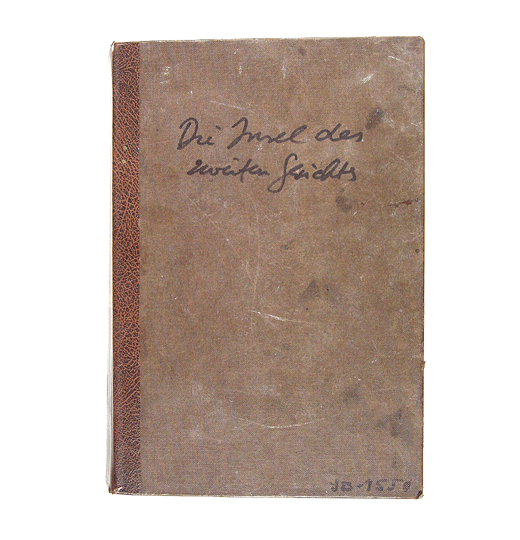 Die Insel des
zweiten Gesichts